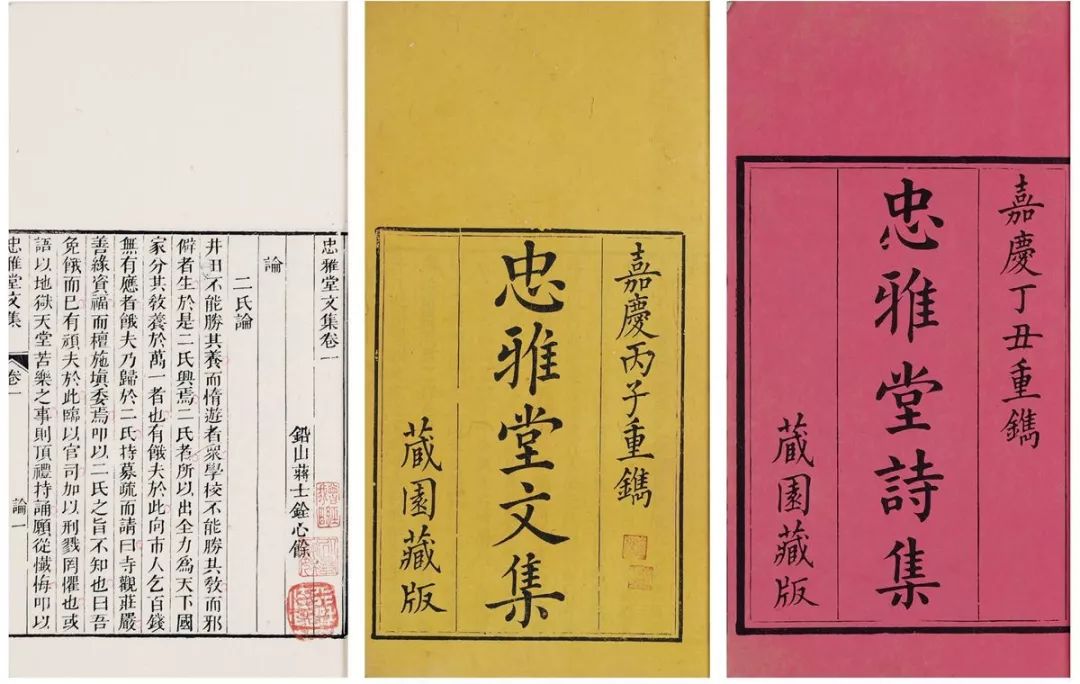 忠雅堂文集卷一
鉛山蔣士銓心餘
論
二氏論
井田不能勝其養而惰遊者衆學校不能勝其教而邪
僻者生於是二氏興焉二氏者所以出全力為天下國
家分其教養於萬一者也有餓夫於此向市人乞百錢
無有應者餓夫乃歸於二氏持募疏而請曰寺觀莊嚴
善緣資福而檀施填委焉叩以二氏之旨不知也曰吾
免餓而已有頑夫於此臨以官司加以刑戮罔懼也或
語以地獄天堂苦樂之事則頂禮持誦願從懺悔叩以
忠雅堂文集
卷一
論一
嘉慶丙子重鐫
忠雅堂文集
蔵園藏版
嘉慶丁丑重鐫
忠雅堂詩集
蔵園藏版